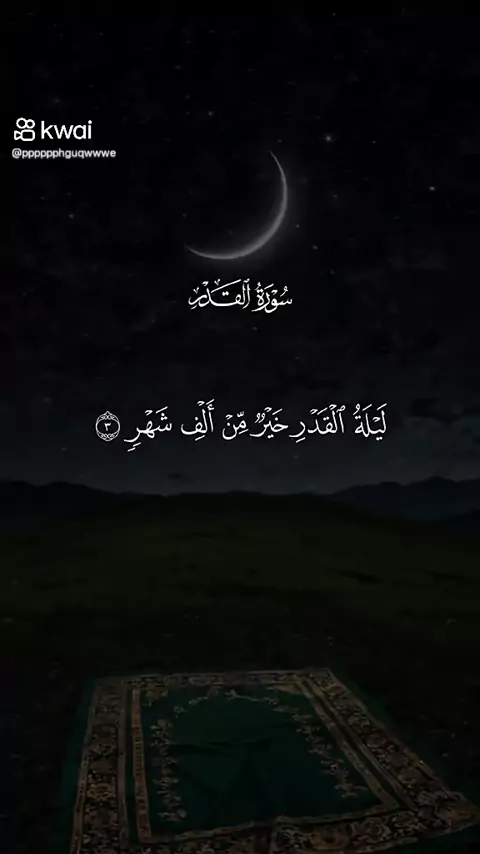 kwai
@pppppphguqwwwe
سُورَةُ ٱلْقَدْرِ
لَيْلَةُ ٱلْقَدْرِ خَيْرٌ مِّنْ أَلْفِ شَهْرٍ ٣